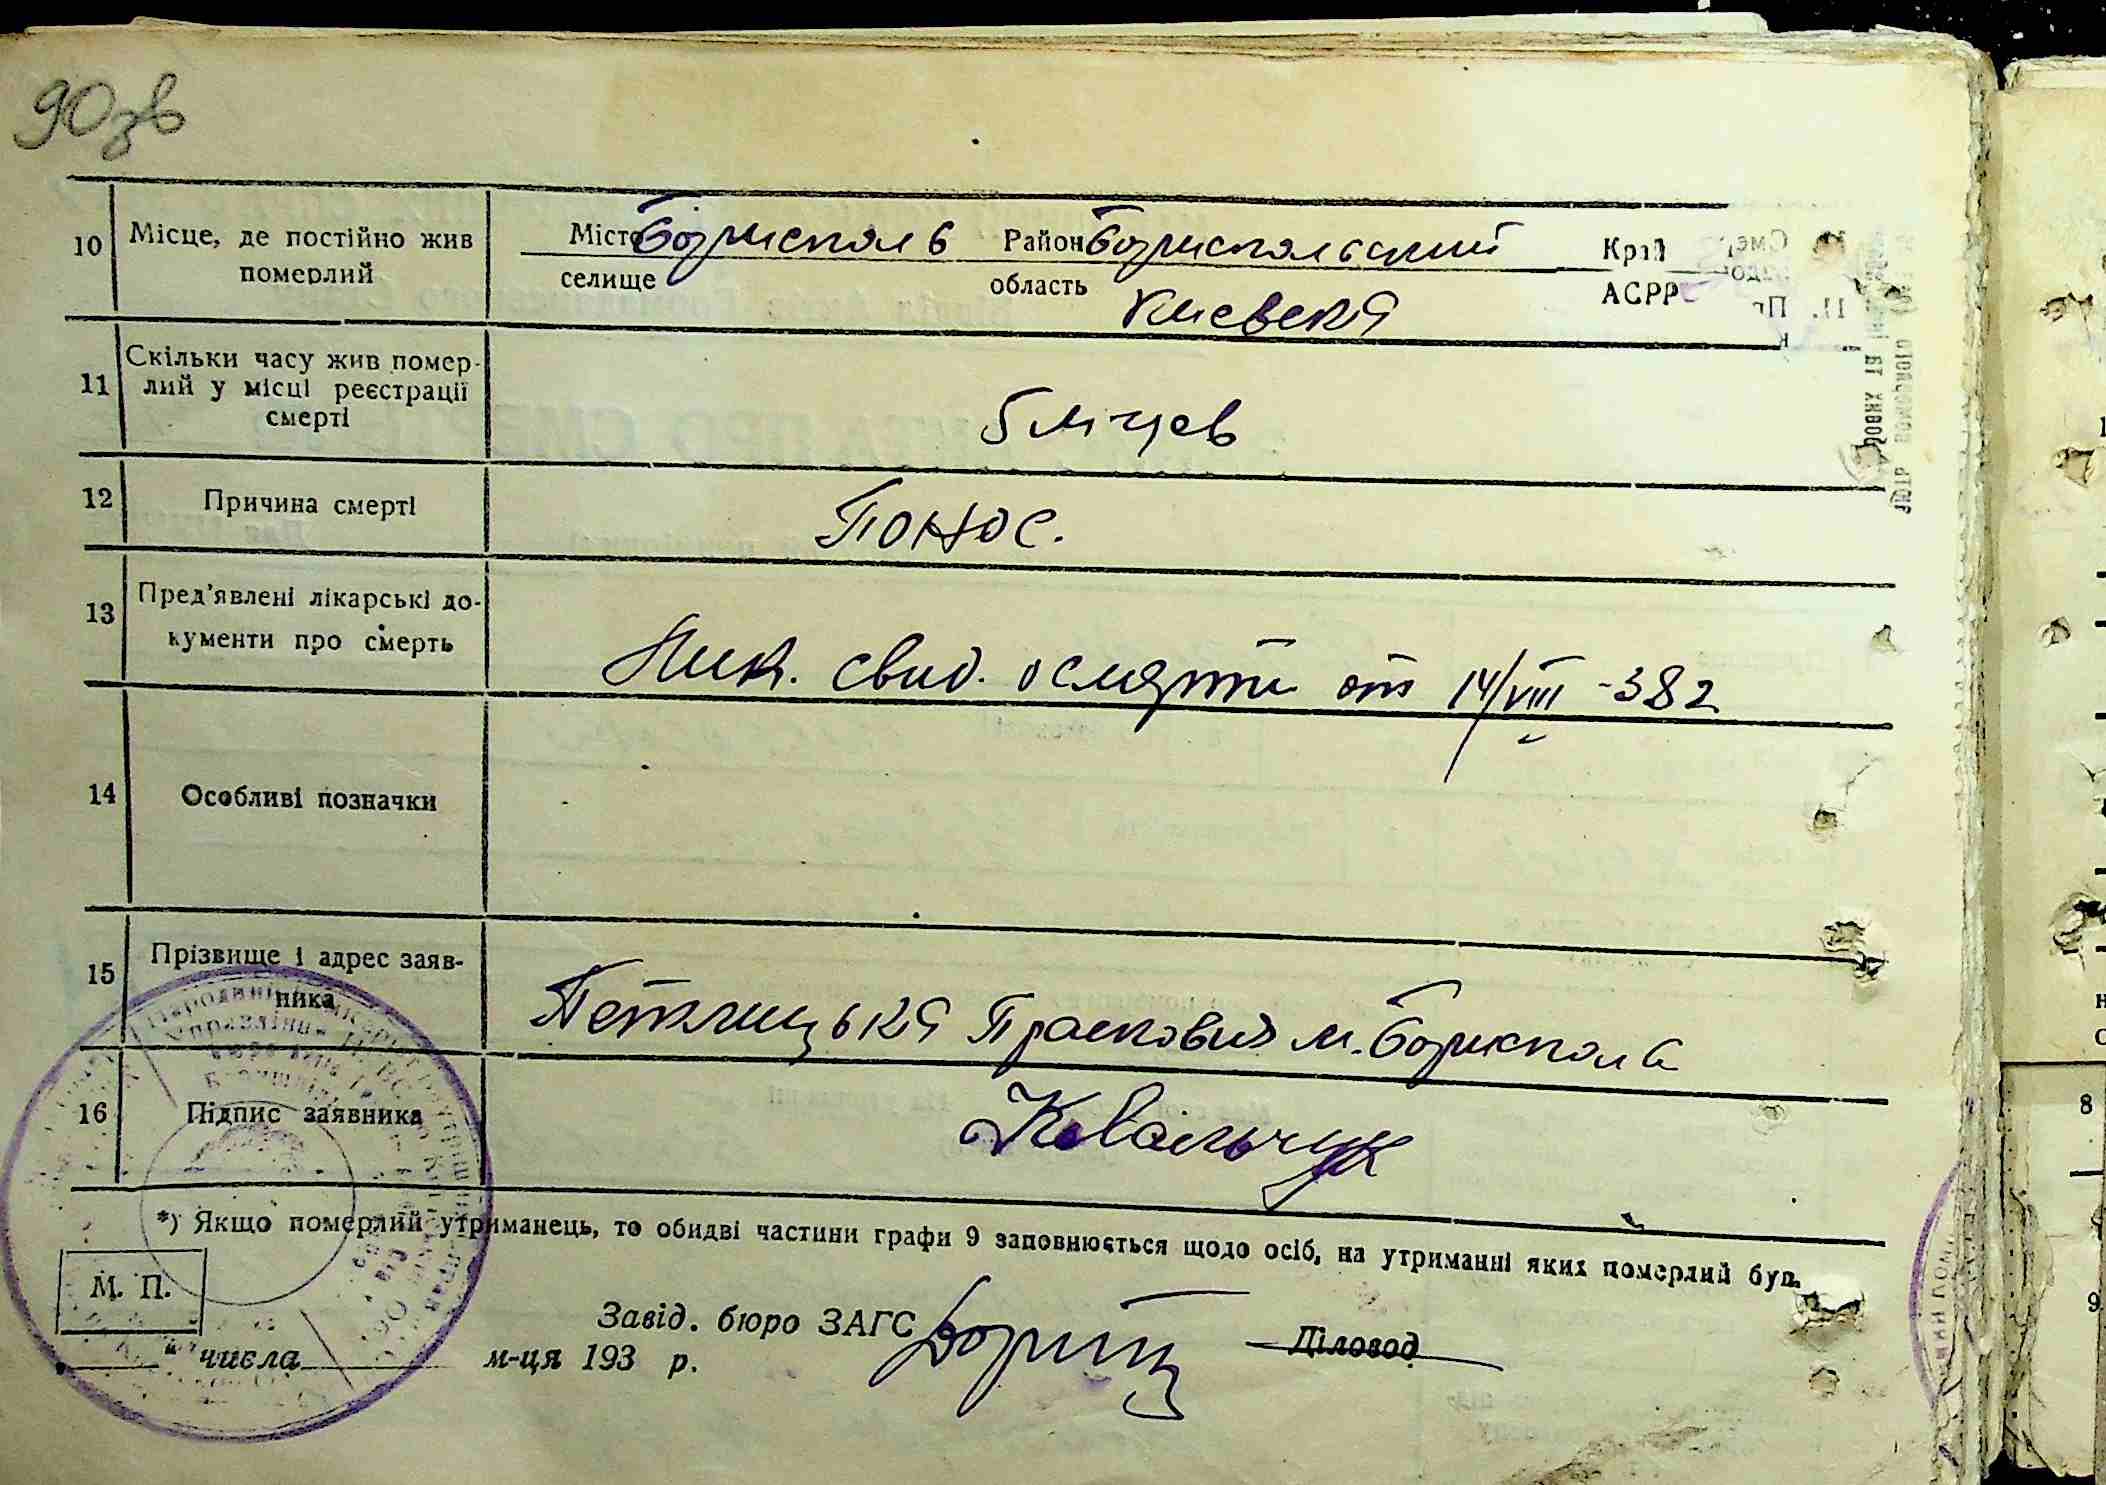 90 зв
10 Місце, де постійно жив померлий Місто Борисполь Район Бориспольский Край
селище область Киевска АСРР
11 Скільки часу жив помер-
лий у місці реєстрації
смерті
5 міцев
12 Причина смерті Понос.
13 Пред'явлені лікарські до-
кументи про смерть
свид. о смерти от 14/VIII-38 г
14 Особливі позначки
15 Прізвище і адрес заяв-
ника
Прасковия м. Борисполь
16 Підпис заявника Ковальчук
*) Якщо померлий утриманець, то обидві частини графи 9 заповнюється щодо осіб, на утриманні яких померлий був.
М. П.
Завід. бюро ЗАГС Діловод
" числа м-ця 193 р.
8
9